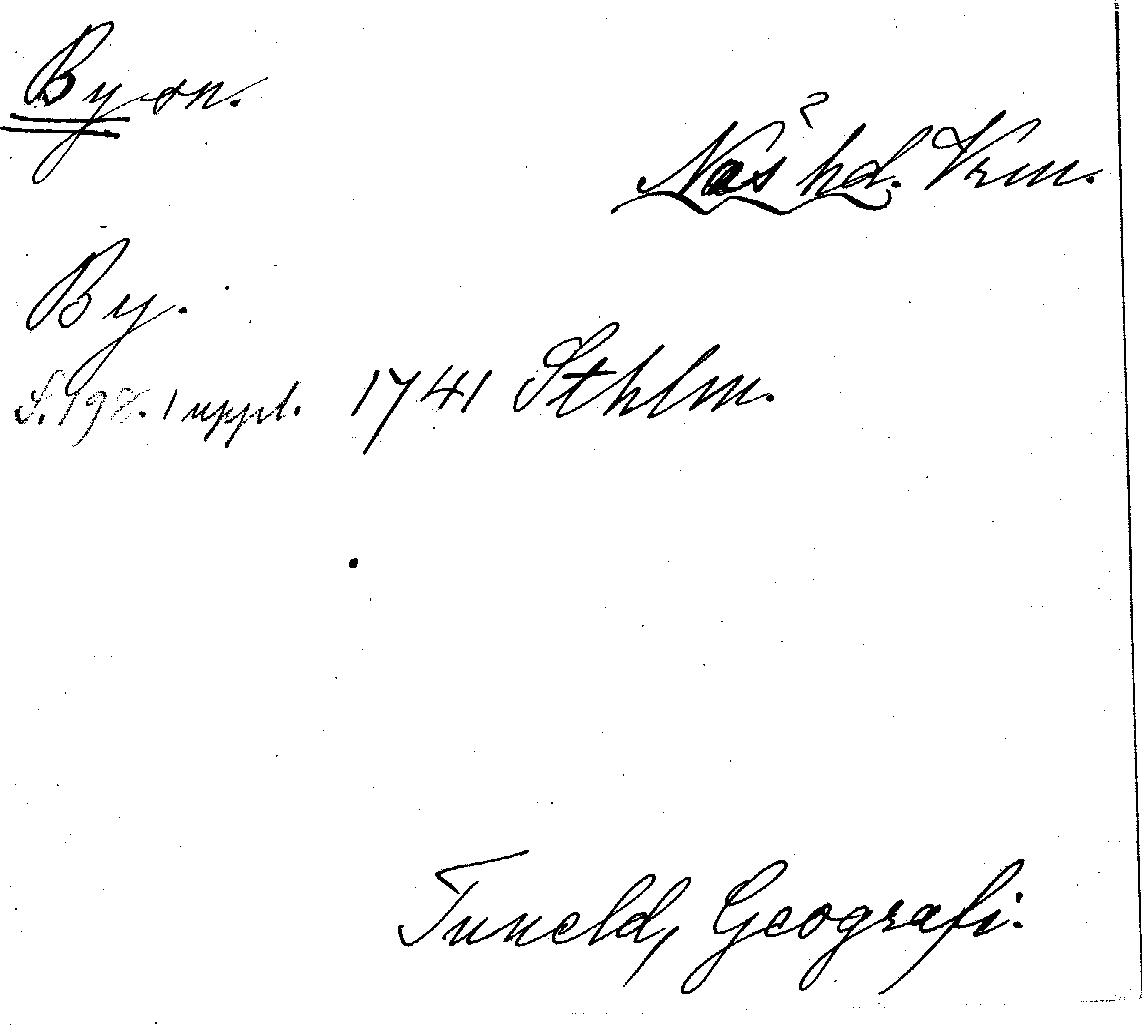 By sn.
Näs hd. Vrm.
By.
S. 198. 1 uppl. 1741 Sthlm.
Tuneld, Geografi.